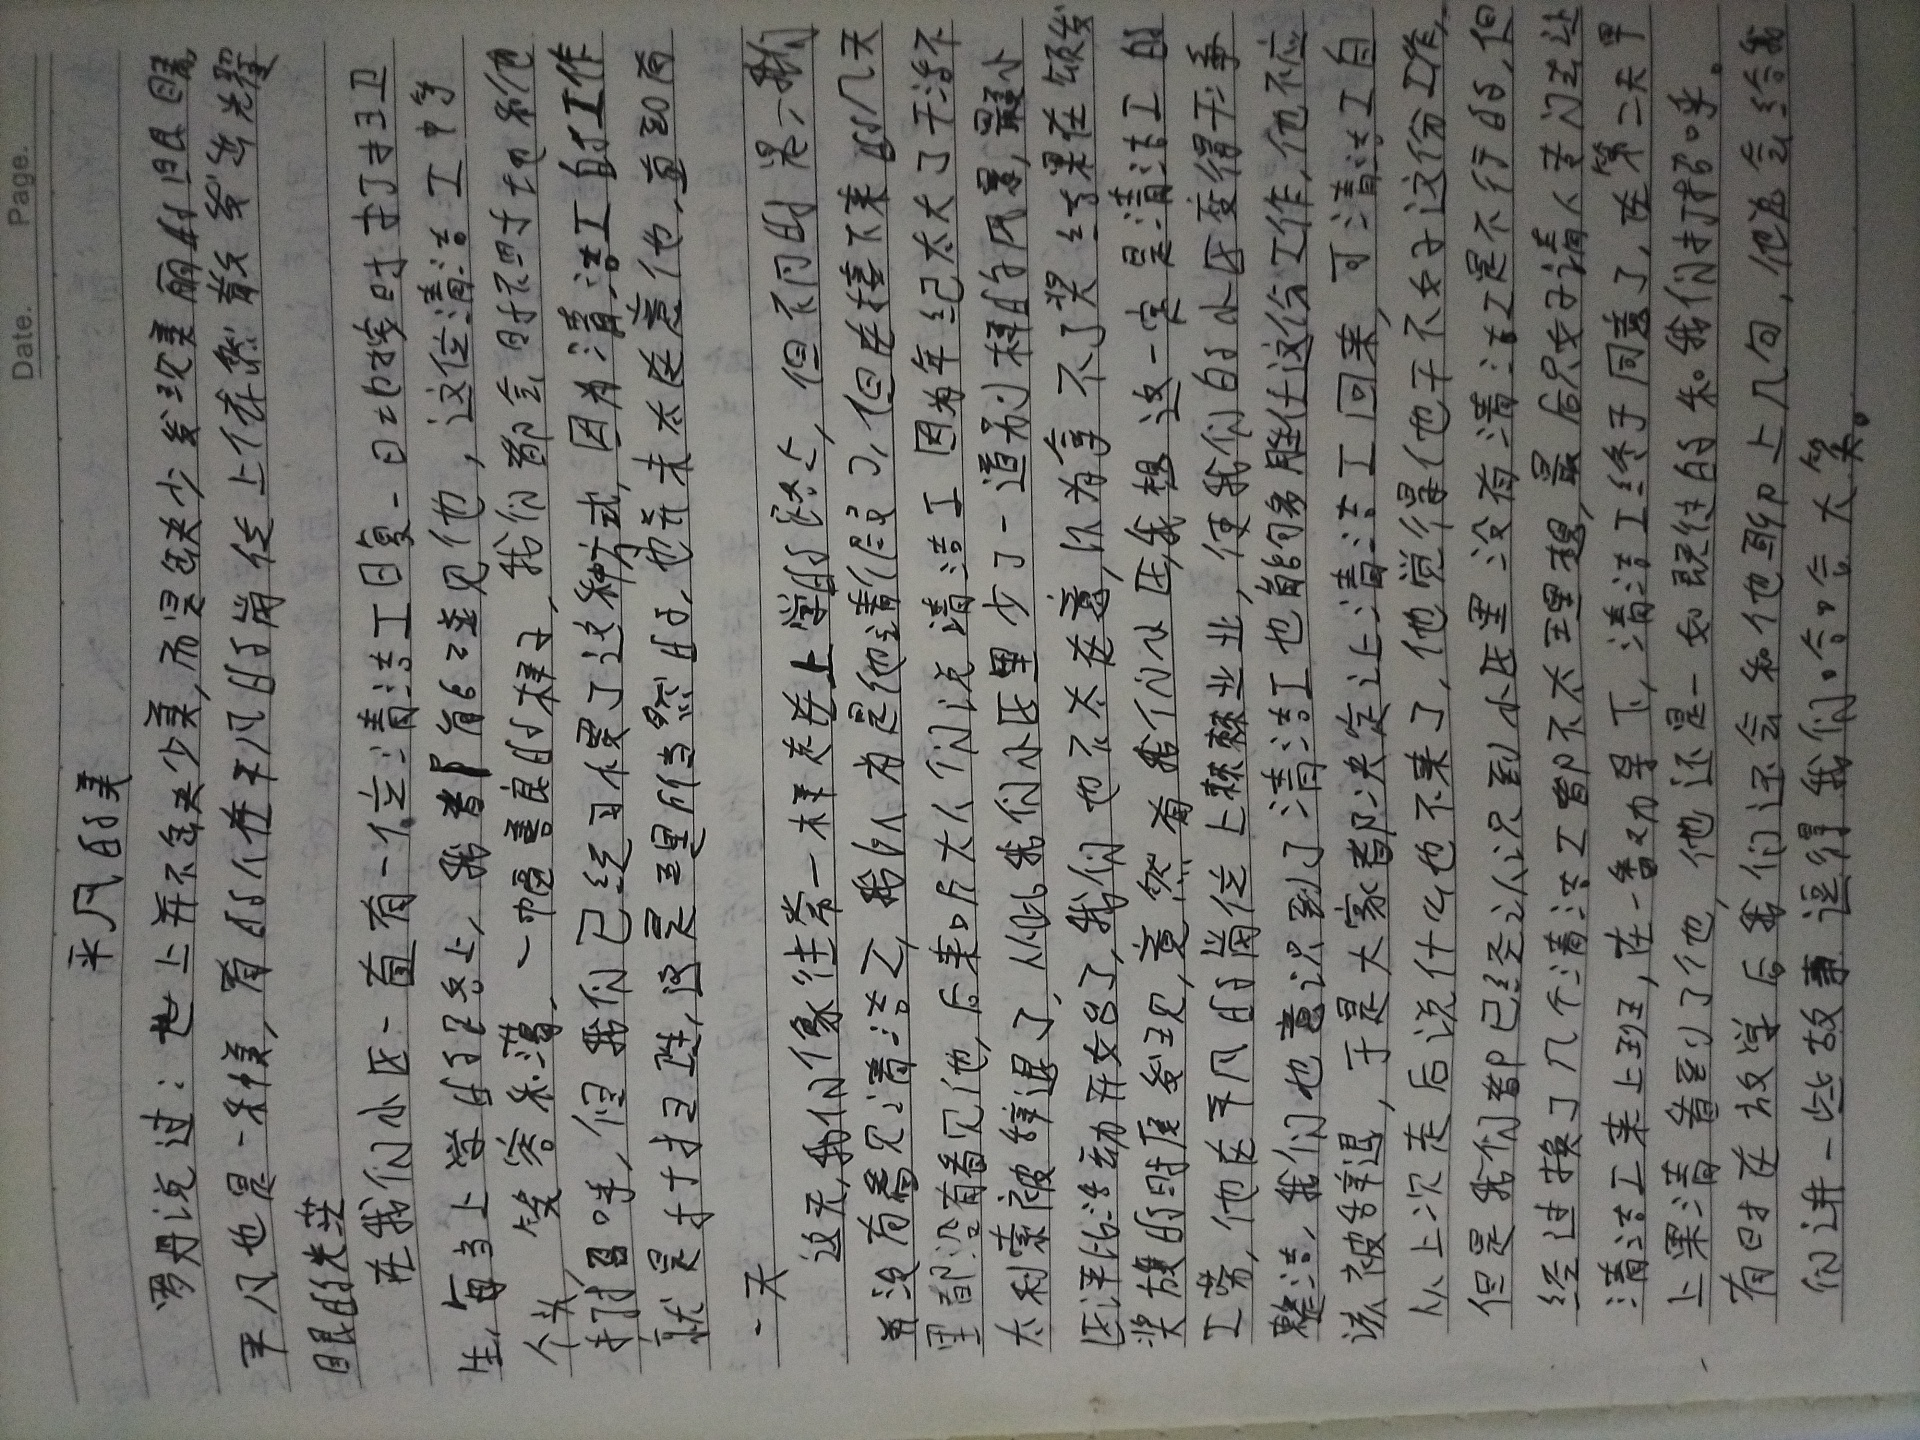 Date. Page.
平凡的美
罗丹说过：世上并不缺少美，而是缺少发现美丽的眼睛
平凡也是一种美，有的人在平凡的岗位上任然散发出光耀
眼的光芒
在我们小区一直有一位清洁工日复一日地按时打扫卫
生，每当上学的路上，我都能碰见他，这位清洁工中等
个头，笑容朴满，一幅善良的样子，我们都会时不时地和他
打招呼，但我们已经习惯了这种方式，因为清洁工的工作
就是打扫卫生，这是理所当然的，也并未太在意他，直到有
一天
这天，我们像往常一样走在上学的路上，但不同的是，我们
没有看见清洁工，我以为是他请假了，但在接下来的几天
里都没有看见他，后来听大人们说清洁工因为年纪太大了干活不
太利索被辞退了，从此我们小区里少了一道别样的风景，最小
区评比活动开始了，我们也不太在意，以为拿不了奖 结果在颁发
奖旗的时候发现，竟然有我们小区，我想这一定是清洁工的
功劳，他在平凡的岗位上兢兢业业，使我们的小区变得干净
整洁，我们也意识到了清洁工也能够胜任这份工作，他不应
该被辞退，于是大家都决定让清洁工回来，可清洁工自
从上次走后说什么也不来了，他觉得他干不好这份工作，
但是我们都已经认识到小区里没有清洁工是不行的，但
经过换了几个清洁工都不太理想，最后只好请人去门去让
清洁工来上班，在一番劝导下，清洁工终于同意了，在第二天早
上果清看到了他，他还是一如既往的和我们打招呼。
有时在放学后我们还会和他聊上几句，他还会给我
们讲一些故事逗得我们哈哈大笑。